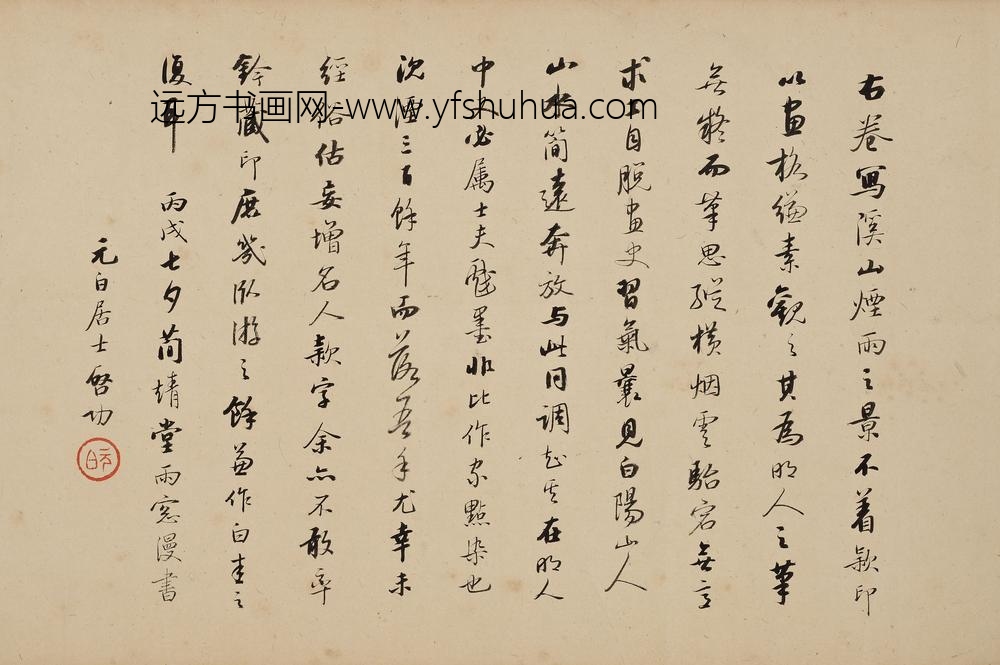 右卷寫溪山煙雨之景不着款印
以畫格縑素觀之其為明人之筆
無疑而筆思縱橫烟雲駘宕無意
求工自脫畫史習氣曩見白陽山人
山水簡遠奔放与此同調知其在明人
中必属士夫戲墨非比作家點染也
沈湮三百餘年而落吾手尤幸未
經俗估妄增名人款字余亦不敢率
鈐藏印庶幾臥游之餘兼作白圭之
復耳 丙戌七夕簡靖堂雨窓漫書
元白居士啓功
元白
远方书画网 www.yfshuhua.com